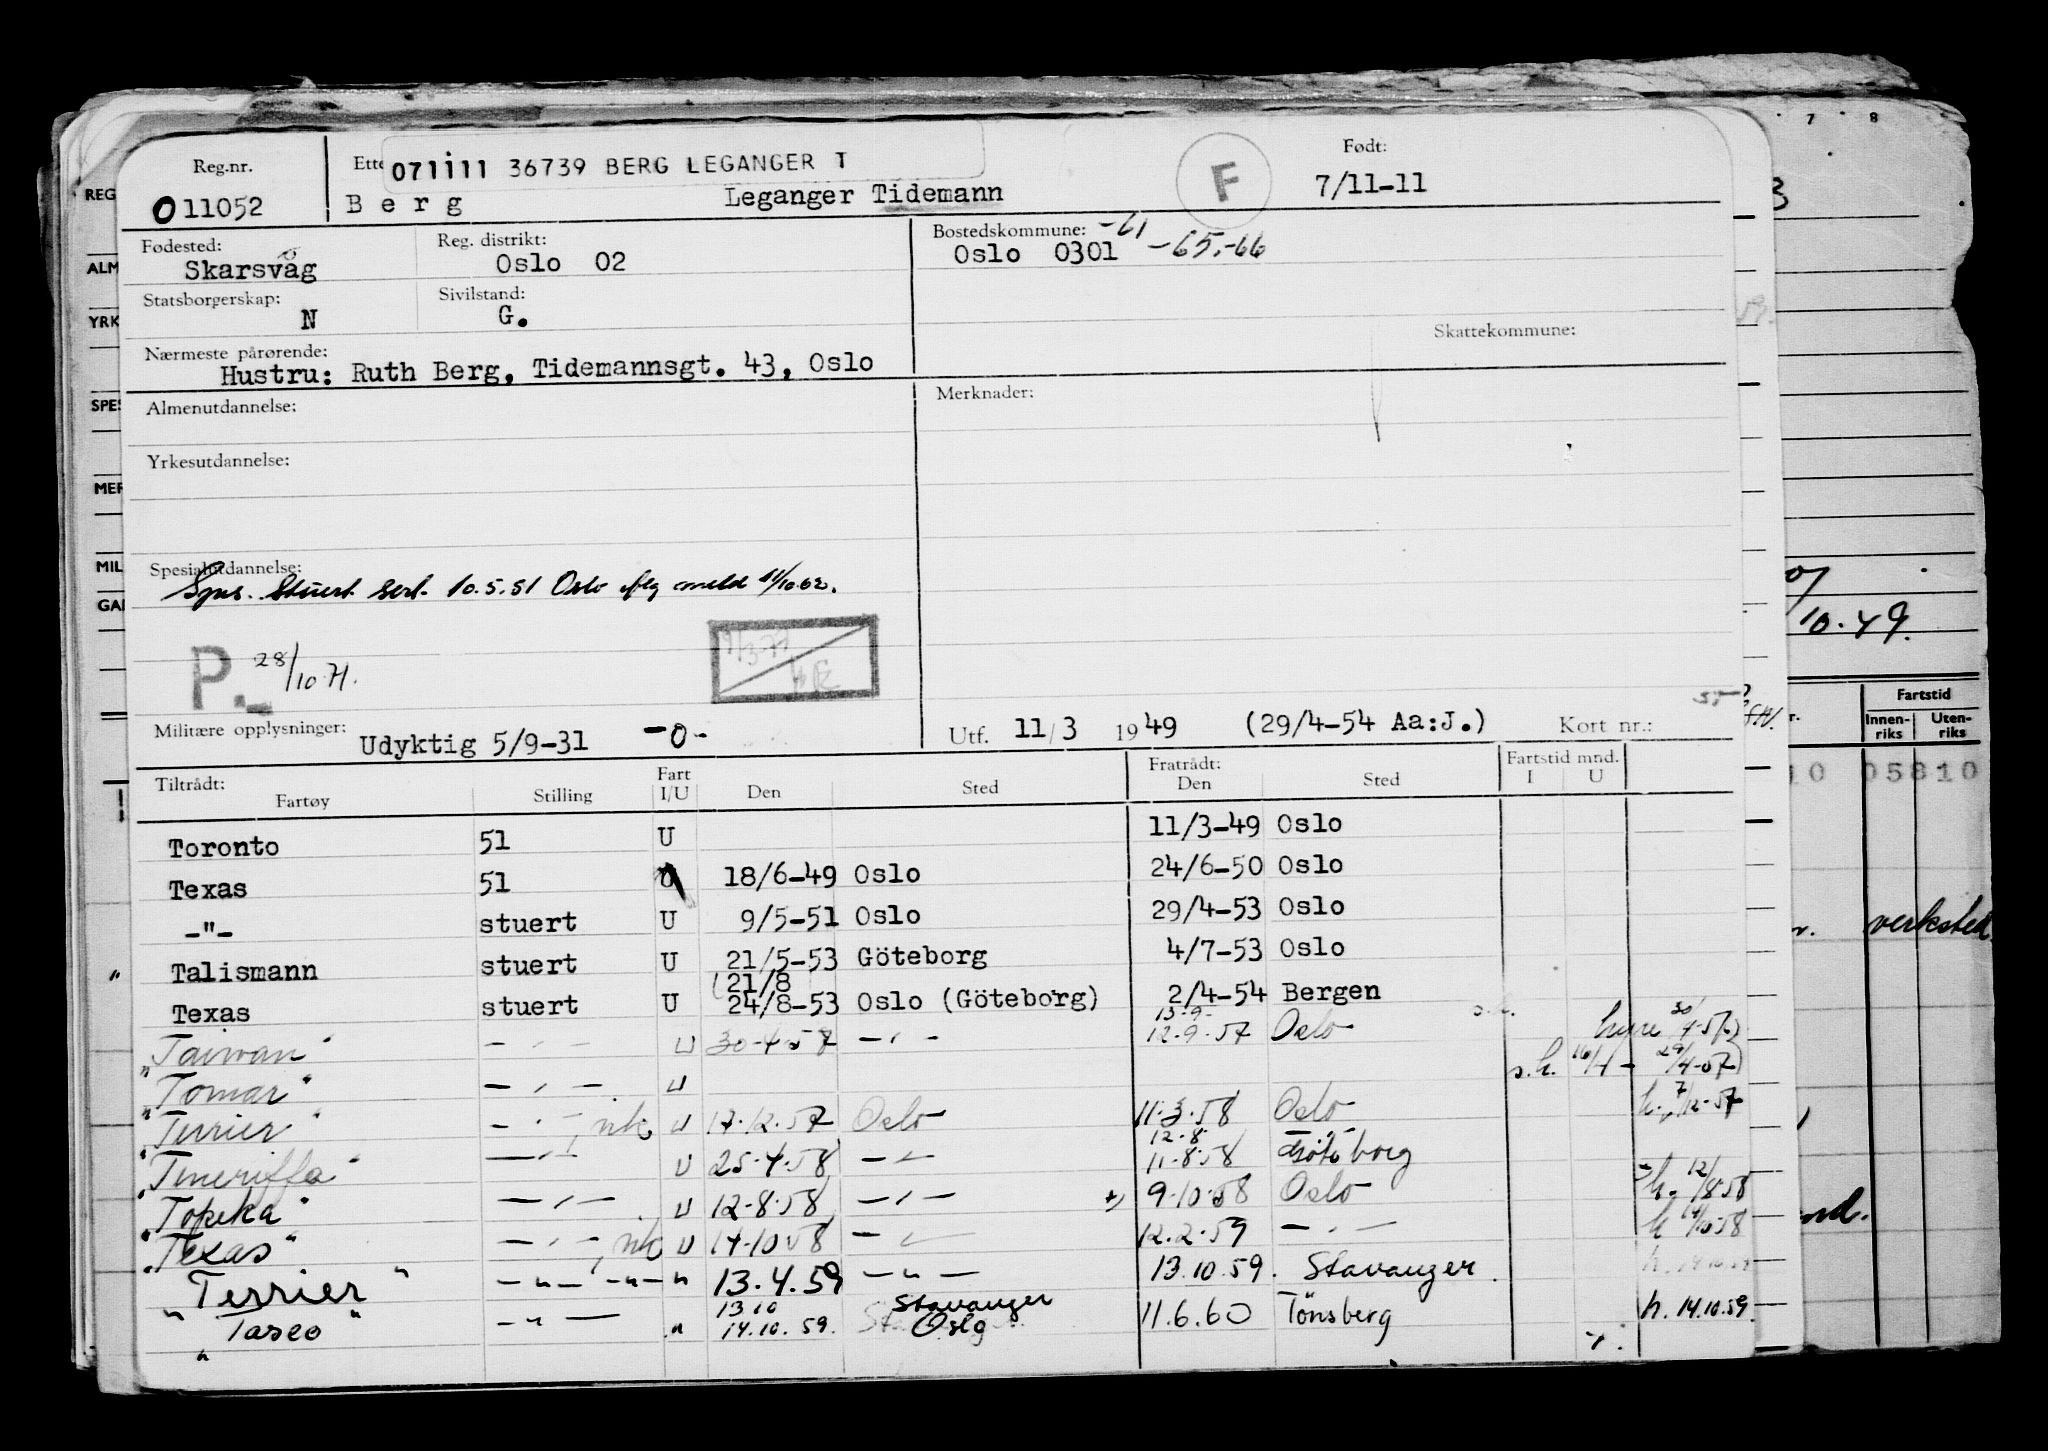 Reg.nr. Ette 071111 36739 BERG LEGANGER T Født:
011052 Berg Leganger Tidemann F 7/11-11
Fødested: Reg. distrikt: Bostedskommune: -61
Skarsvåg Oslo 02 Oslo 0301 -65.-66
Statsborgerskap: Sivilstand:
N G.
Skattekommune:
Nærmeste pårørende:
Hustru: Ruth Berg, Tidemannsgt. 43, Oslo
Almenutdannelse: Merknader:
Yrkesutdannelse:
Spesialutdannelse:
Stuert sert. 10.5.51 Oslo meld 11/10.62.
P. 28/10.71.
Militære opplysninger: Udyktig 5/9-31 -0- Utf. 11/3 1949 (29/4-54 Aa:J.) Kort nr.:
Tiltrådt: Fart Fratrådt: Fartstid mnd.
Fartøy Stilling I/U Den Sted Den Sted I U
Toronto 51 U 11/3-49 Oslo
Texas 51 U 18/6-49 Oslo 24/6-50 Oslo
-"- stuert U 9/5-51 Oslo 29/4-53 Oslo
Talismann stuert U 21/5-53 Göteborg 4/7-53 Oslo
(21/8
Texas stuert U 24/8-53 Oslo (Göteborg) 2/4-54 Bergen
13-9-
"Taiwan" - " - U 30-4-57 - " - 12-9-57 Oslo hyre 30/4-57)
"Tomar" - " - U s.h. 16/4 - 29/4-57)
"Terrier" - " - U 17-12-57 Oslo 11-3-58 Oslo h. 7/12-57
12-8-
"Teneriffa" - " - U 25-4-58 - " - 11-8-58 Göteborg
"Topeka" - " - U 12-8-58 - " - 9-10-58 Oslo h. 12/8-58
"Texas" - " - U 14-10-58 - " - 12.2.59 - " - h 14/10-58
"Terrier" - " - " - " 13.4.59 - " - 13.10.59. Stavanger. h. 14.10.59
13.10 Stavanger
"Tasco" - " - " 14.10.59. Oslo 11.6.60 Tönsberg h. 14.10.59.
REG
ALM
YRK
SPES
MER
MIL
GAR
7 8
10.49.
Fartstid
Innen-riks Uten-riks
10 05810
verksted.